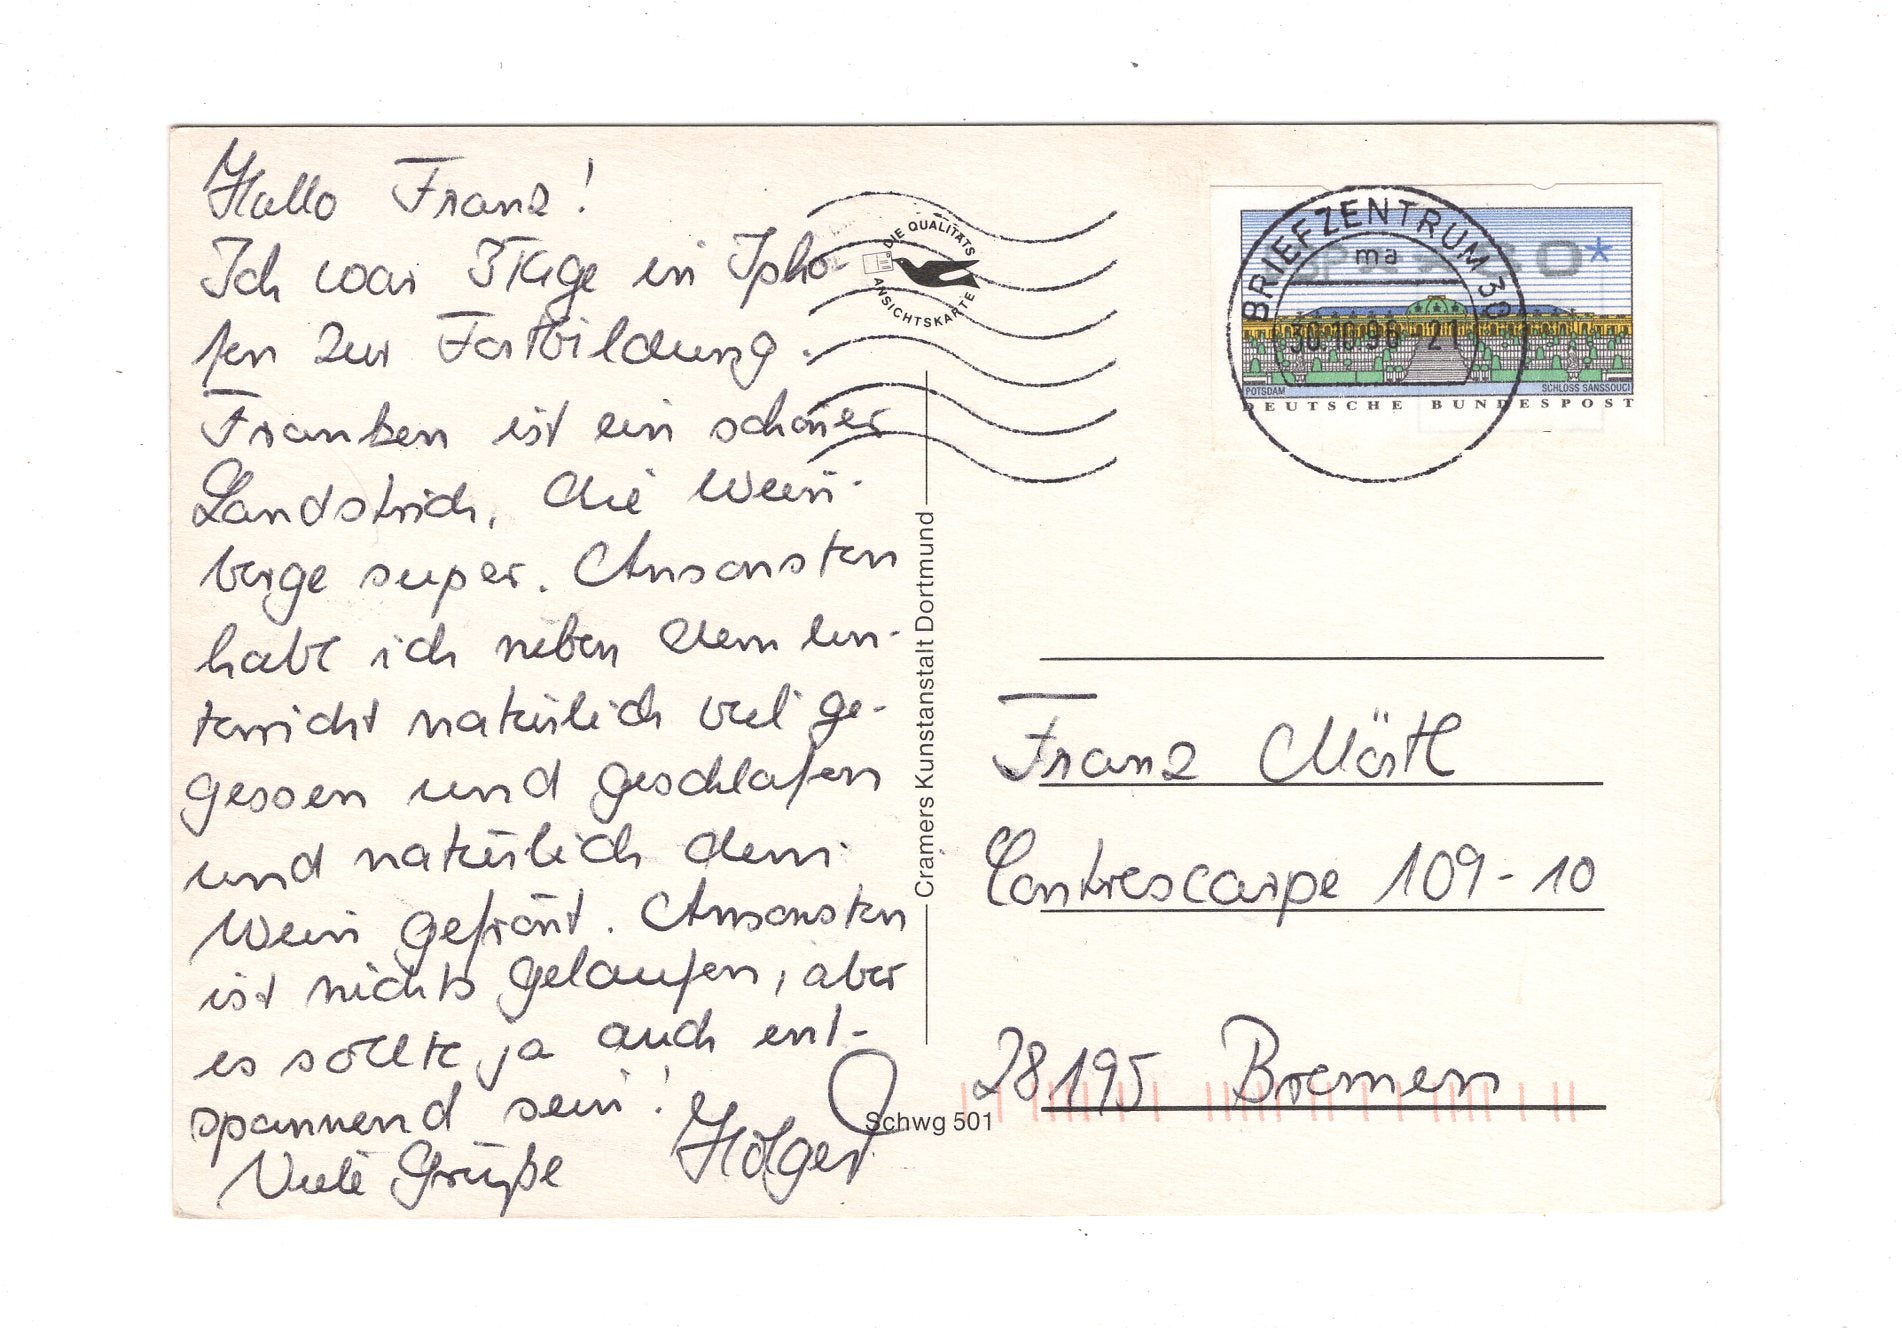 Hallo Franz!
Ich war 3 Tage in Ipho-
fen zur Fortbildung.
Franken ist ein schöner
Landstrich, die Wein-
berge super. Ansonsten
habe ich neben dem Un-
terricht natürlich viel ge-
gessen und geschlafen
und natürlich dem
Wein gefrönt. Ansonsten
ist nichts gelaufen, aber
es sollte ja auch ent-
spannend sein!
Viele Grüße Holger
DIE QUALITÄTS
ANSICHTSKARTE
Cramers Kunstanstalt Dortmund
Schwg 501
BRIEFZENTRUM 30
ma
30.10.96 21
POTSDAM SCHLOSS SANSSOUCI
DEUTSCHE BUNDESPOST
Franz Mörtl
Contrescarpe 109-10
28195 Bremen